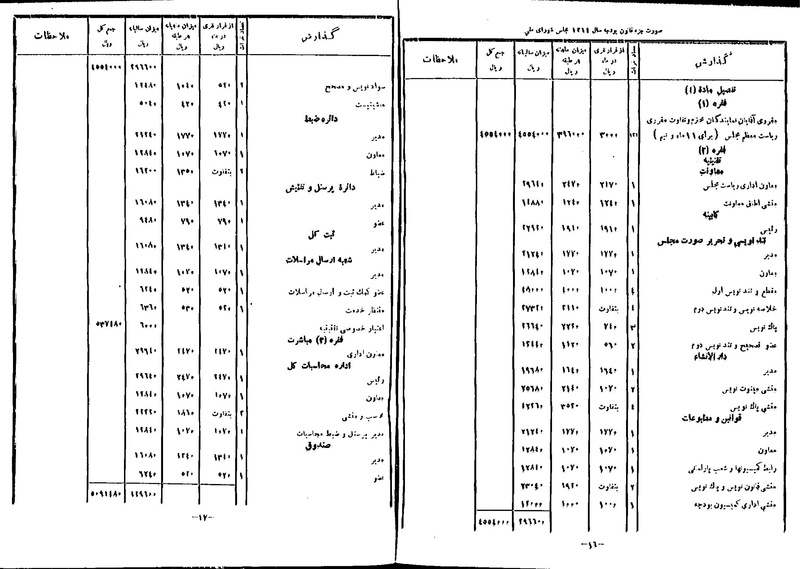 صورت جزء قانون بودجه سال ۱۳۱۴ مجلس شورای ملی
گذارش تعداد نفرات از قرار نفری در ماه ریال میزان ماهانه هر طبقه ریال میزان سالیانه ریال جمع کل ریال ملاحظات
تفصیل ماده (۱)
فقره (۱)
مقرری آقایان نمایندگان محترم وتفاوت مقرری
ریاست معظم مجلس ( برای ۱۱ ماه و نیم ) ۱۳۲ ۳۰۰۰ ۳۹۶۰۰۰ ۴۵۵۴۰۰۰ ۴۵۵۴۰۰۰
فقره (۲)
تقنینیه
معاونت
معاون اداری ریاست مجلس ۱ ۲۴۷۰ ۲۴۷۰ ۲۹۶۴۰
منشی اطاق معاونت ۱ ۱۲۴۰ ۱۲۴۰ ۱۴۸۸۰
کابینه
رئیس ۱ ۱۹۱۰ ۱۹۱۰ ۲۲۹۲۰
تند نویسی و تحریر صورت مجلس
مدیر ۱ ۱۷۷۰ ۱۷۷۰ ۲۱۲۴۰
معاون ۱ ۱۰۷۰ ۱۰۷۰ ۱۲۸۴۰
مقطع و تند نویس اول ۴ ۱۰۰۰ ۴۰۰۰ ۴۸۰۰۰
خلاصه نویس و تند نویس دوم ۴ بتفاوت ۳۱۱۰ ۳۷۳۲۰
پاك نویس ۳ ۷۴۰ ۲۲۲۰ ۲۶۶۴۰
عضو تصحیح و تند نویس دوم ۲ ۵۶۰ ۱۱۲۰ ۱۳۴۴۰
دار الانشاء
مدیر ۱ ۱۶۴۰ ۱۶۴۰ ۱۹۶۸۰
منشی مینوت نویس ۲ ۱۰۷۰ ۲۱۴۰ ۲۵۶۸۰
منشی پاك نویس ۴ بتفاوت ۳۵۳۰ ۴۲۳۶۰
قوانین و مطبوعات
مدیر ۱ ۱۷۷۰ ۱۷۷۰ ۲۱۲۴۰
معاون ۱ ۱۰۷۰ ۱۰۷۰ ۱۲۸۴۰
رابط کمیسیونها و شعب پارلمانی ۱ ۱۰۷۰ ۱۰۷۰ ۱۲۸۴۰
منشی قانون نویس و پاك نویس ۲ بتفاوت ۱۹۲۰ ۲۳۰۴۰
منشی اداری کمیسیون بودجه ۱ ۱۰۰۰ ۱۰۰۰ ۱۲۰۰۰
۳۹۶۶۰۰ ۴۵۵۴۰۰۰
—۱۶—
گذارش تعداد نفرات از قرار نفری در ماه ریال میزان ماهیانه هر طبقه ریال میزان سالیانه ریال جمع کل ریال ملاحظات
۳۹۶۶۰۰ ۴۵۵۴۰۰۰
سواد نویس و مصحح ۲ ۵۲۰ ۱۰۴۰ ۱۲۴۸۰
ماشینیست ۱ ۴۲۰ ۴۲۰ ۵۰۴۰
دائره ضبط
مدیر ۱ ۱۷۷۰ ۱۷۷۰ ۲۱۲۴۰
معاون ۱ ۱۰۷۰ ۱۰۷۰ ۱۲۸۴۰
ضباط ۲ بتفاوت ۱۳۵۰ ۱۶۲۰۰
دائرۀ پرسنل و تفتیش
مدیر ۱ ۱۳۴۰ ۱۳۴۰ ۱۶۰۸۰
عضو ۱ ۷۹۰ ۷۹۰ ۹۴۸۰
ثبت کل
مدیر ۱ ۱۳۴۰ ۱۳۴۰ ۱۶۰۸۰
شعبه ارسال مراسلات
مدیر ۱ ۱۰۷۰ ۱۰۷۰ ۱۲۸۴۰
عضو کمك ثبت و ارسال مراسلات ۱ ۵۲۰ ۵۲۰ ۶۲۴۰
منتظر خدمت ۱ ۵۳۰ ۵۳۰ ۶۳۶۰
اعتبار خصوصی تقنینیه ۶۰۰۰ ۵۳۷۴۸۰
فقره (۳) مباشرت
معاون اداری ۱ ۲۴۷۰ ۲۴۷۰ ۲۹۶۴۰
اداره محاسبات کل
رئیس ۱ ۲۴۷۰ ۲۴۷۰ ۲۹۶۴۰
معاون ۱ ۱۰۷۰ ۱۰۷۰ ۱۲۸۴۰
محسب و منشی ۲ بتفاوت ۱۸۶۰ ۲۲۳۲۰
مدیر پرسنل و ضبط محاسبات ۱ ۱۰۷۰ ۱۰۷۰ ۱۲۸۴۰
صندوق
مدیر ۱ ۱۳۴۰ ۱۳۴۰ ۱۶۰۸۰
عضو ۱ ۵۲۰ ۵۲۰ ۶۲۴۰
۱۲۹۶۰۰ ۵۰۹۱۴۸۰
—۱۷—